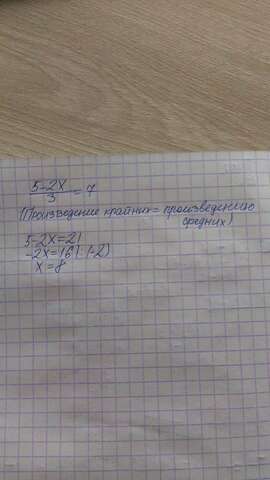 5-2x/3 = 7
(Произведение крайних = произведению
средних)
5-2x=21
-2x=16|:(-2)
x=8